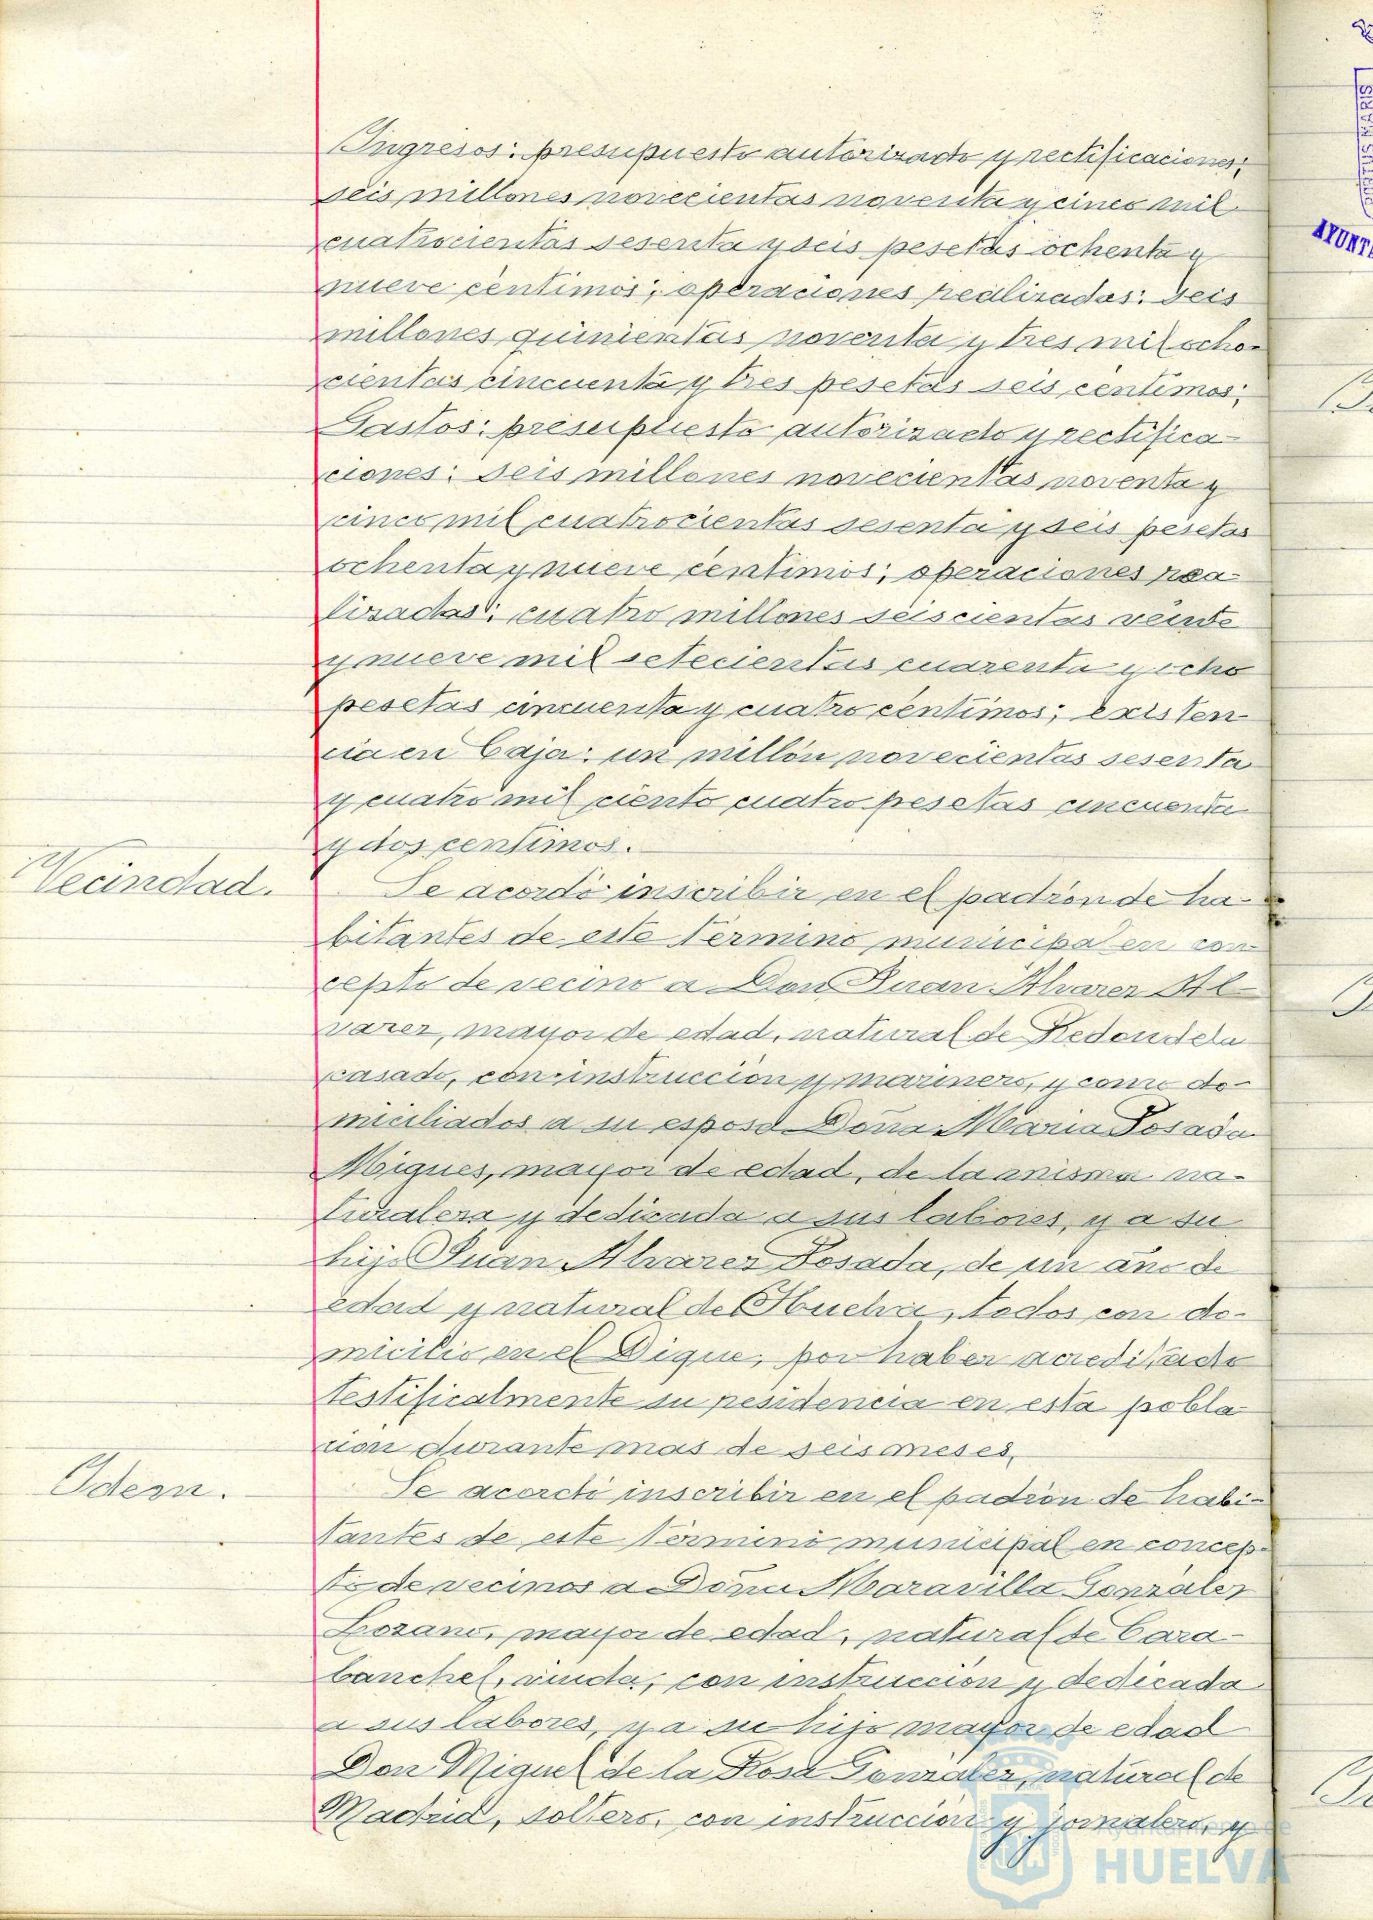 Ingresos: presupuesto autorizado y rectificaciones;
seis millones novecientas noventa y cinco mil
cuatrocientas sesenta y seis pesetas ochenta y
nueve céntimos; operaciones realizadas: seis
millones quinientas noventa y tres mil ocho-
cientas cincuenta y tres pesetas seis céntimos;
Gastos: presupuesto autorizado y rectifica-
ciones: seis millones novecientas noventa y
cinco mil cuatrocientas sesenta y seis pesetas
ochenta y nueve céntimos; operaciones rea-
lizadas: cuatro millones seiscientas veinte
y nueve mil setecientas cuarenta y ocho
pesetas cincuenta y cuatro céntimos; existen-
cia en Caja: un millón novecientas sesenta
y cuatro mil ciento cuatro pesetas cincuenta
y dos centimos.
Vecindad.
Se acordó inscribir en el padrón de ha-
bitantes de este término municipal en con-
cepto de vecino a Don Juan Alvarez Al-
varez, mayor de edad, natural de Redondela
casado, con instrucción y marinero, y como do-
miciliados a su esposa Doña Maria Posada
Migues, mayor de edad, de la misma na-
turaleza y dedicada a sus labores, y a su
hijo Juan Alvarez Posada, de un año de
edad y natural de Huelva, todos con do-
micilio en el Dique, por haber acreditado
testificalmente su residencia en esta pobla-
cion durante mas de seis meses.
Idem.
Se acordó inscribir en el padrón de habi-
tantes de este término municipal en concep-
to de vecinos a Doña Maravilla González
Lozano, mayor de edad, natural de Cara-
banchel, viuda, con instrucción y dedicada
a sus labores, y a su hijo mayor de edad
Don Miguel de la Rosa González, natural de
Madrid, soltero, con instrucción y jornalero, y
Ayuntamiento de
HUELVA
PORTUS MARIS
AYUNTA